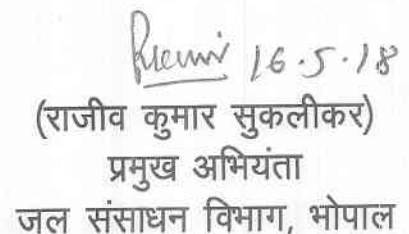 16.5.18
(राजीव कुमार सुकलीकर)
प्रमुख अभियंता
जल संसाधन विभाग, भोपाल